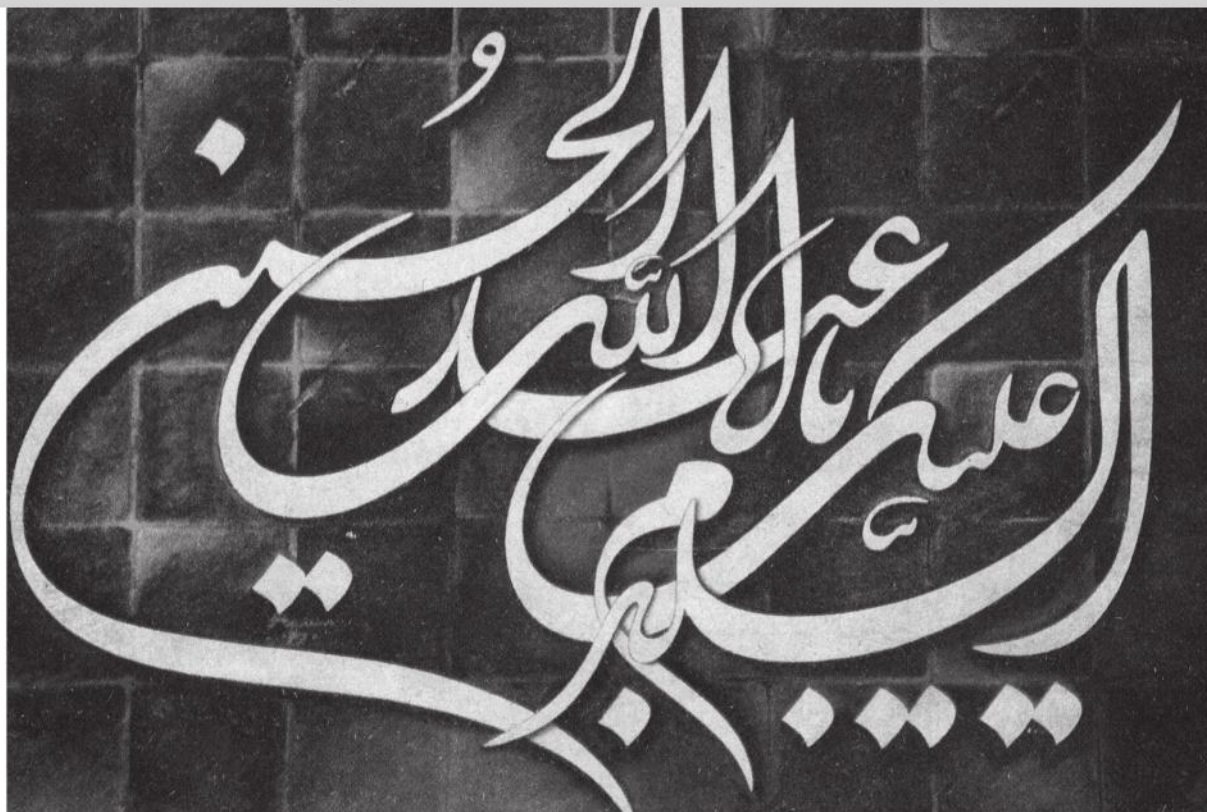 السلام علیک یا ابا عبدالله الحسین